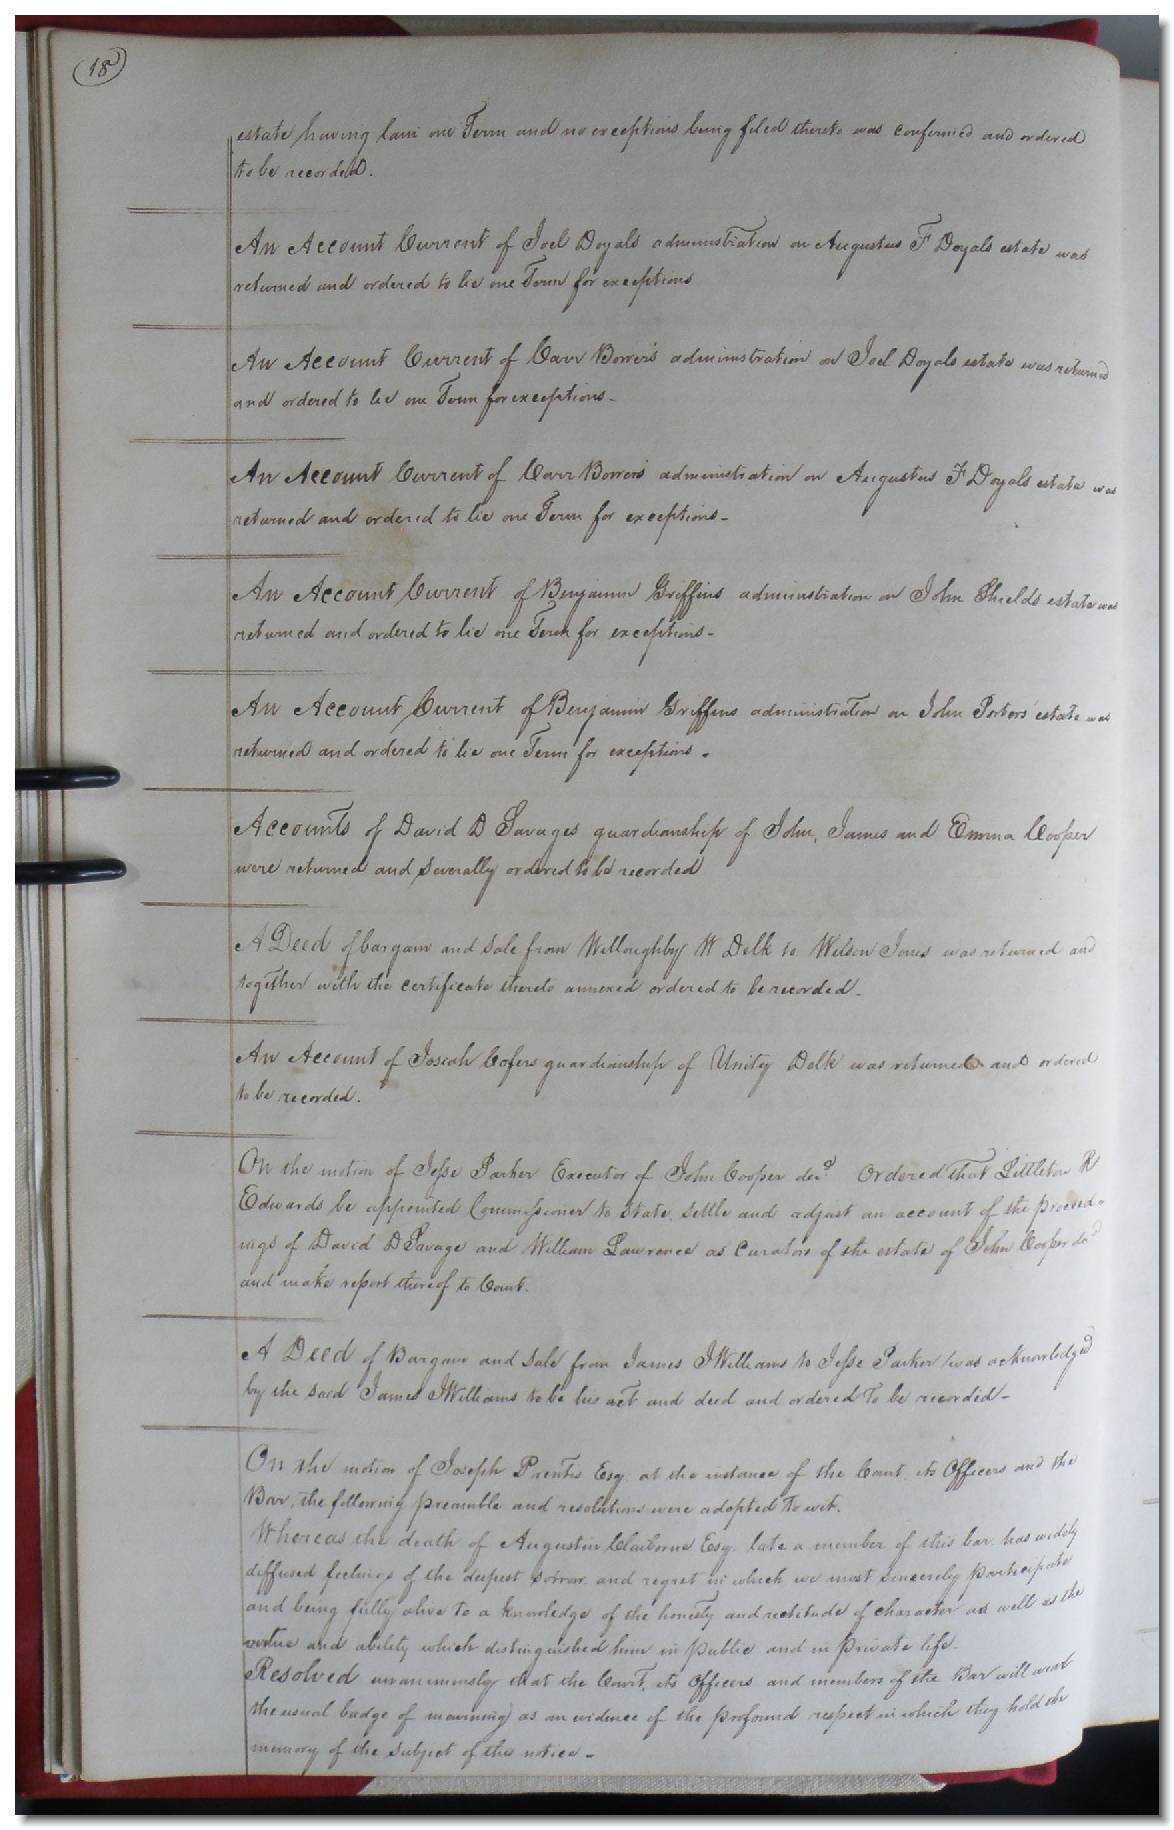 18
estate having lain one Term and no exceptions being filed thereto was confirmed and ordered
to be recorded.
An Account Current of Joel Doyals administration on Augustus F Doyals estate was
returned and ordered to lie one Term for exceptions
An Account Current of Carr Bowers administration on Joel Doyals estate was returned
and ordered to lie one Term for exceptions -
An Account Current of Carr Bowers administration on Augustus F Doyals estate was
returned and ordered to lie one Term for exceptions -
An Account Current of Benjamin Griffins administration on John Shields estate was
returned and ordered to lie one Term for exceptions -
An Account Current of Benjamin Griffins administration on John Porters estate was
returned and ordered to lie one Term for exceptions -
Accounts of David D Savages guardianship of John, James and Emma Cooper
were returned and severally ordered to be recorded
A Deed of bargain and sale from Willoughby W Delk to Wilson Jones was returned and
together with the certificate thereto annexed ordered to be recorded -
An Account of Josiah Cofers guardianship of Unity Delk was returned and ordered
to be recorded.
On the motion of Jesse Parker Executor of John Cooper decd Ordered that Littleton R
Edwards be appointed Commissioner to state, settle and adjust an account of the proceed-
ings of David D Savage and William Lawrence as curators of the estate of John Cooper decd
and make report thereof to Court.
A Deed of Bargain and Sale from James J Williams to Jesse Parker was acknowledged
by the said James J Williams to be his act and deed and ordered to be recorded -
On the motion of Joseph Prentis Esq. at the instance of the Court, its Officers and the
Bar, the following preamble and resolutions were adopted to wit.
Whereas the death of Augustin Claiborne Esq. late a member of this bar has widely
diffused feelings of the deepest sorrow and regret in which we most sincerely participate
and being fully alive to a knowledge of the honesty and rectitude of character as well as the
virtue and ability which distinguished him in public and in private life.
Resolved unanimously that the Court, its Officers and members of the Bar will wear
the usual badge of mourning as an evidence of the profound respect in which they hold the
memory of the subject of this notice -